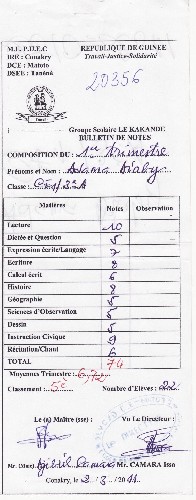 M.E. P.U.E.C REPUBLIQUE DE GUINEE
IRE : Conakry Travail-Justice-Solidarité
DCE : Matoto
DSEE : Tanéné
20356
Groupe Scolaire LE KAKANDE
BULLETIN DE NOTES
COMPOSITION DU : 1er Trimestre
Prénoms et Nom : Adama Diaby
Classe :
Matières Notes Observation
Lecture 10
Dictée et Question 5
Expression écrite/Langage 7
Ecriture 8
Calcul écrit 6
Histoire 8
Géographie 5
Sciences d'Observation 5
Dessin 5
Instruction Civique 9
Récitation/Chant 6
TOTAL 74
Moyennes Trimestre : 6,72
Classement : 5e Nombre d'Elèves : 22
Le (a) Maître (sse) : Vu Le Directeur :
Camara Mr. CAMARA Isso
Conakry, le 2/8/2011